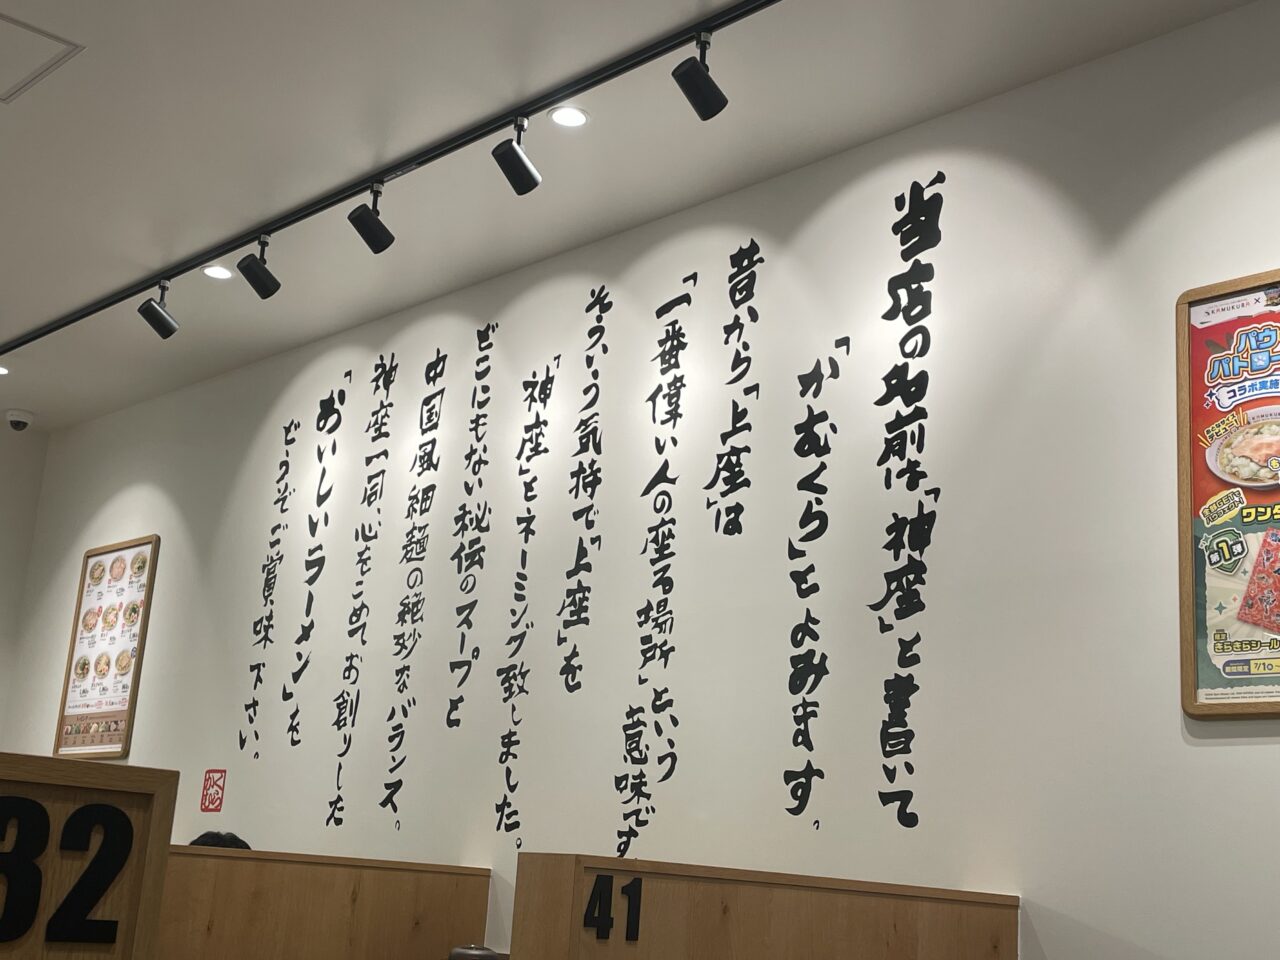 当店の名前は「神座」と書いて
「かむくら」とよみます。
昔から「上座」は
「一番偉い人の座る場所」という
意味です
そういう気持で「上座」を
「神座」とネーミング致しました。
どこにもない秘伝のスープと
中国風細麺の絶妙なバランス。
神座一同、心をこめてお創りした
「おいしいラーメン」を
どうぞご賞味下さい。
かむくら
32
41
KAMUKURA ×
パウ
パトロー
コラボ実施
デビュー!
ワンタ
第1弾
きらきらシール
期間限定
7/10~